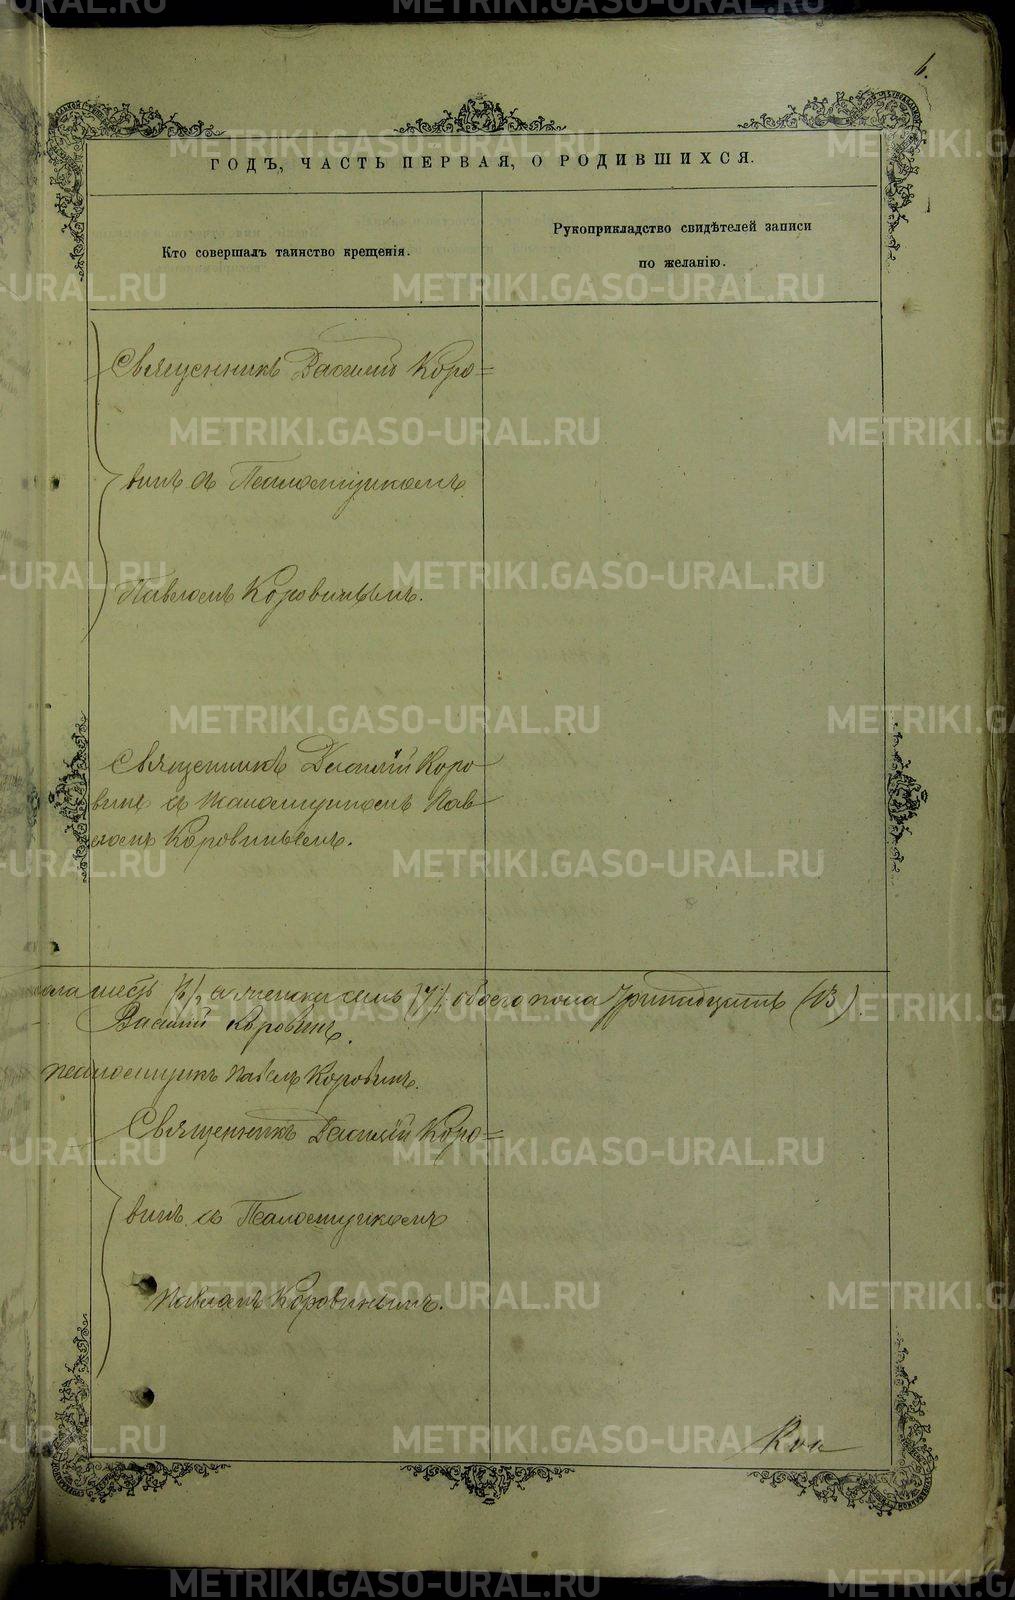 6.
ГОДЪ, ЧАСТЬ ПЕРВАЯ, О РОДИВШИХСЯ.
Кто совершалъ таинство крещенія.
Рукоприкладство свидѣтелей записи
по желанію.
Священникъ Василій Коро=
винъ съ Псаломщикомъ
Павломъ Коровинымъ.
Священникъ Василій Коро
винъ съ псаломщикомъ Пав
ломъ Коровинымъ.
пола шесть (6), а женска семь (7) обоего пола тринадцать (13).
Василій Коровинъ.
псаломщикъ Павелъ Коровинъ.
Священникъ Василій Коро=
винъ съ Псаломщикомъ
Павломъ Коровинымъ.
METRIKI.GASO-URAL.RU